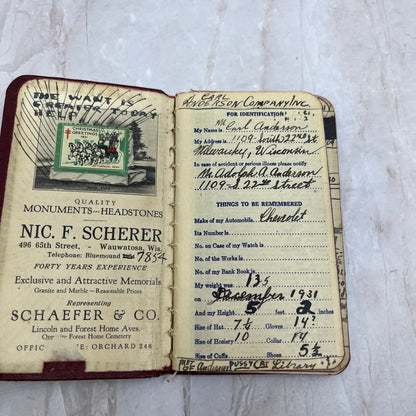 THE WANT IS
GREATER TODAY
HELP
CHRISTMAS
GREETINGS
QUALITY
MONUMENTS---HEADSTONES
NIC. F. SCHERER
496 65th Street, - Wauwatosa, Wis.
Telephone: Bluemound 7854
FORTY YEARS EXPERIENCE
Exclusive and Attractive Memorials
Granite and Marble—Reasonable Prices
Representing
SCHAEFER & CO.
Lincoln and Forest Home Aves.
Opposite Forest Home Cemetery
OFFICE PHONE: ORCHARD 248
CARL
ANDERSON COMPANY INC
FOR IDENTIFICATION
My Name is Mr Carl Anderson
My Address is 1109 South 22nd St
Milwaukee, Wisconsin
In case of accident or serious illness please notify
Mr. Adolph A. Anderson
1109 - S 22nd Street
THINGS TO BE REMEMBERED
Make of my Automobile, Chevrolet
Its Number is
No. on Case of my Watch is
No. of the Works is
No. of my Bank Book is
My weight was 135
on December 1931
and my Height 5 feet 2 inches
Size of Hat 7 1/2 Gloves 14?
Size of Hosiery 10 Collar 14
Size of Cuffs Shoes 5 1/2
OF Anderson PUSSYCAT Library